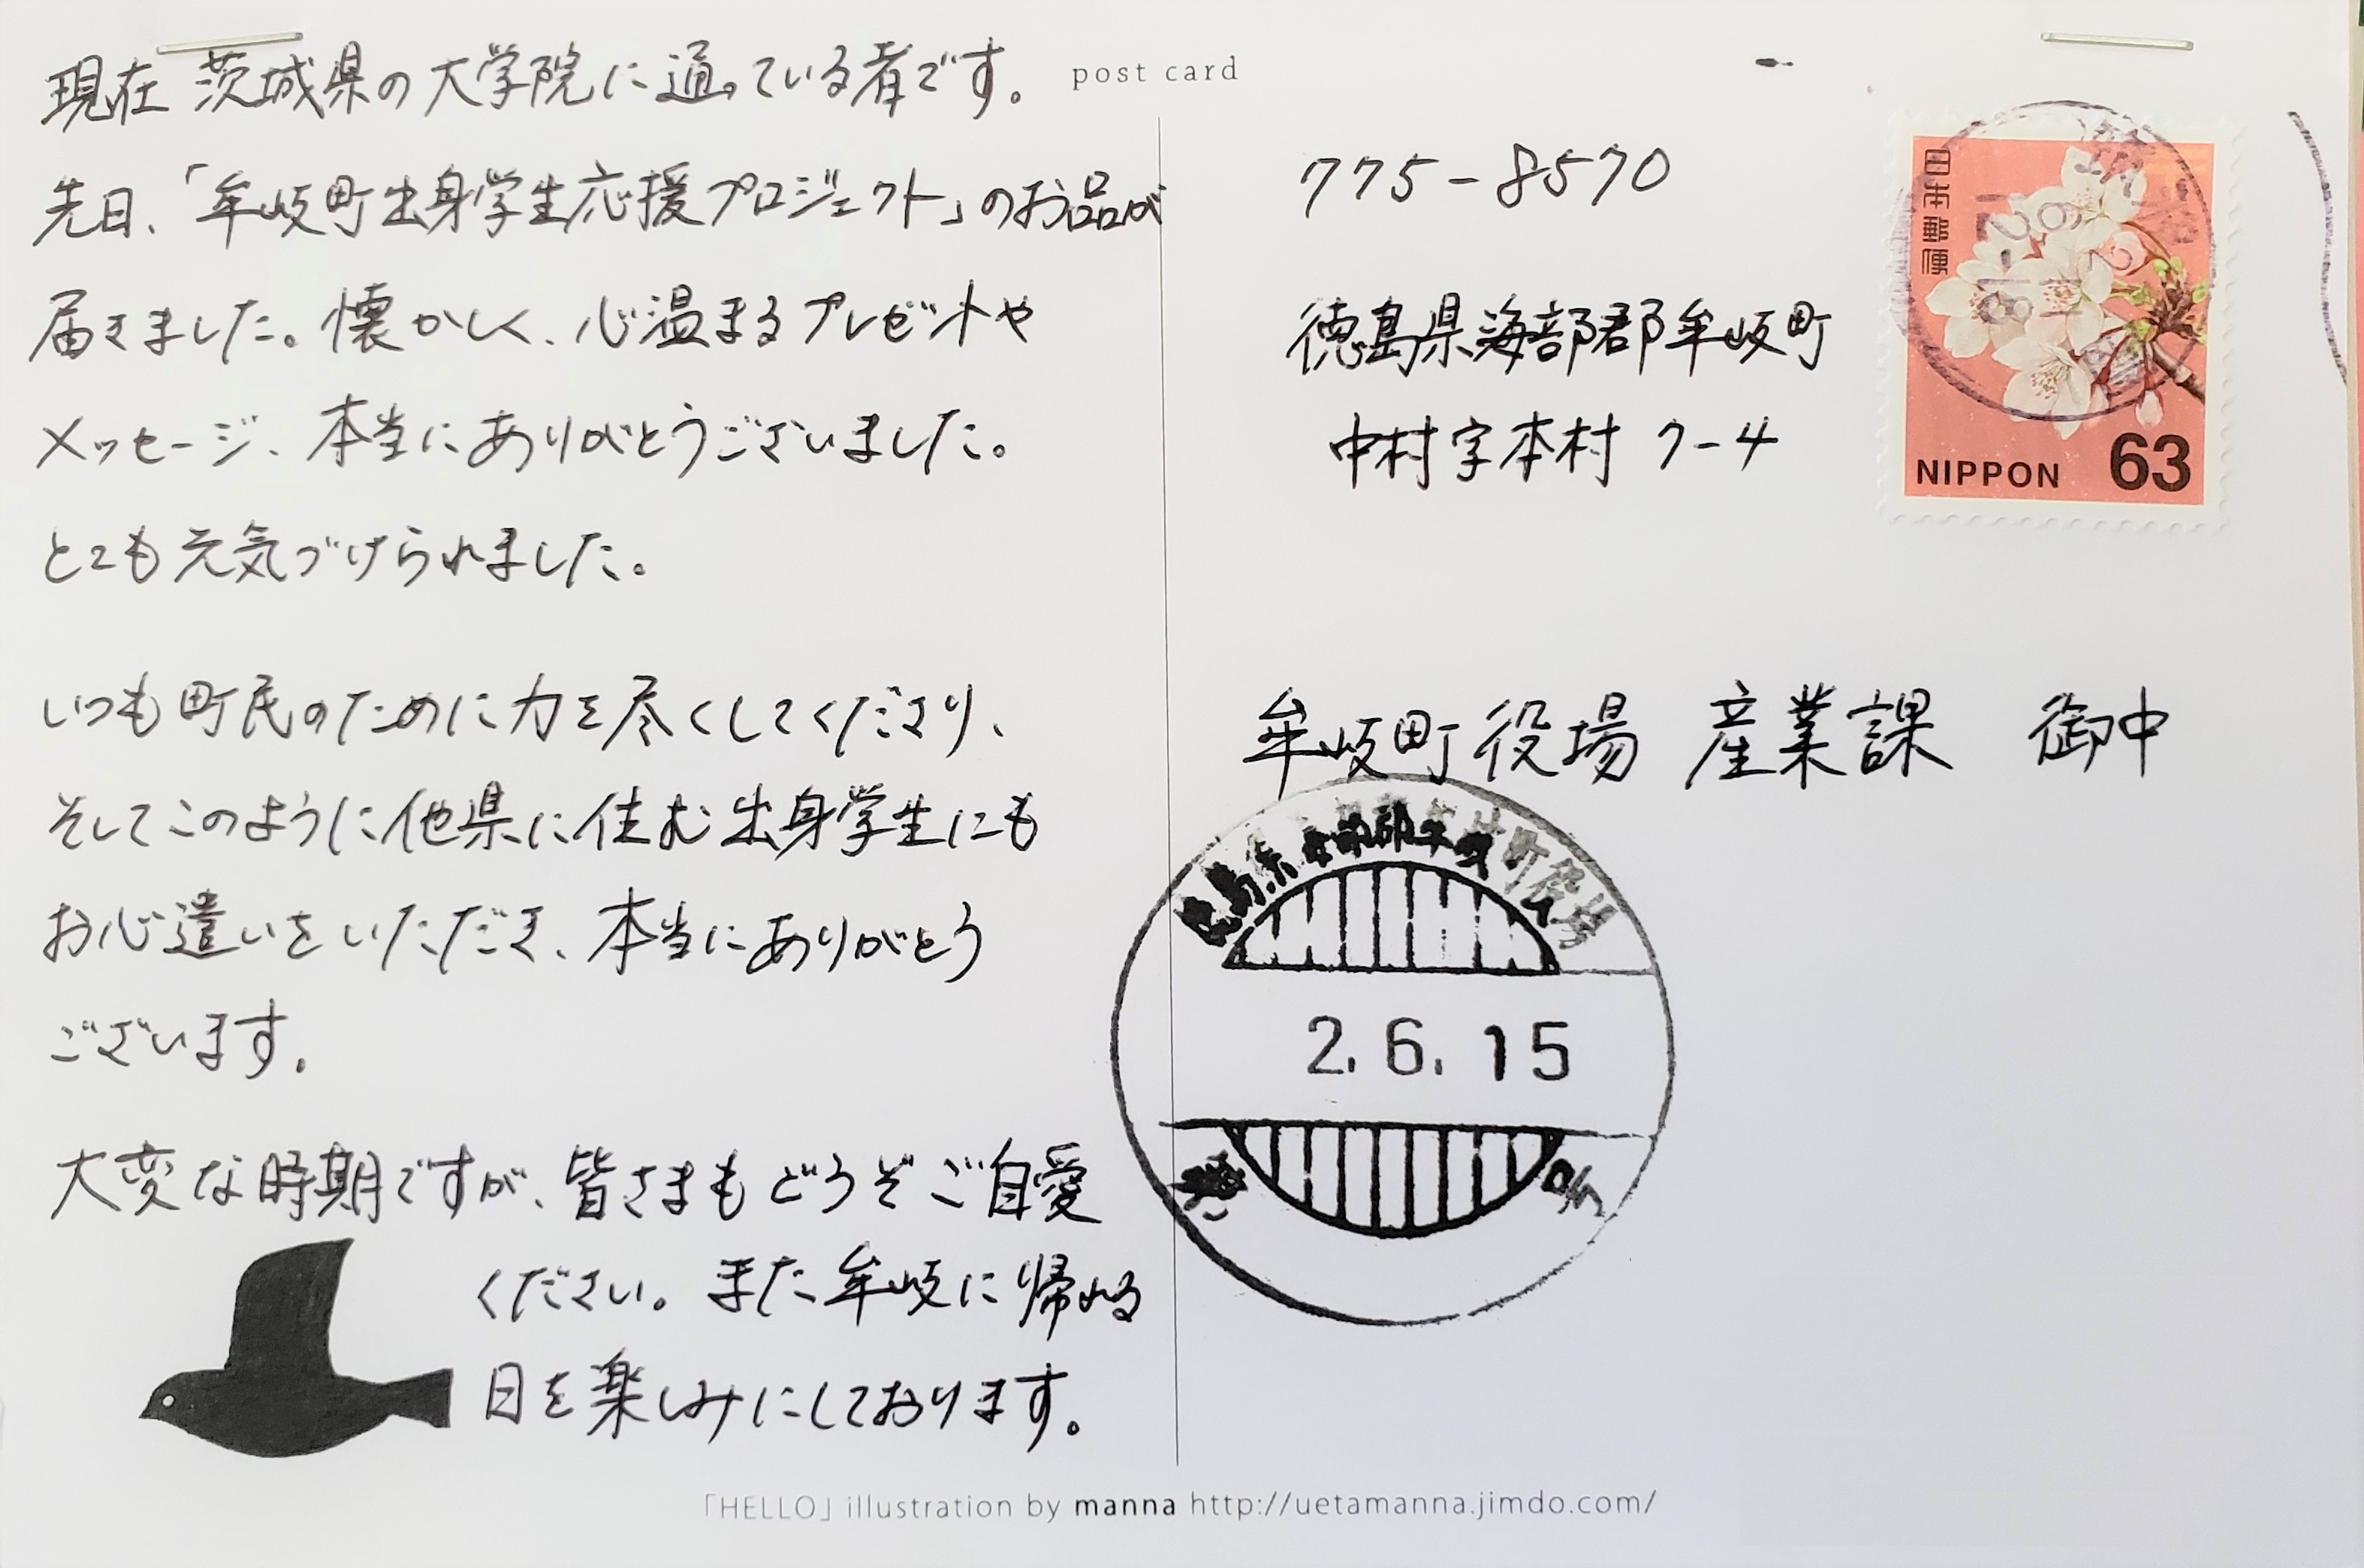 現在 茨城県の大学院に通っている者です。
先日、「牟岐町出身学生応援プロジェクト」のお品が
届きました。懐かしく、心温まるプレゼントや
メッセージ、本当にありがとうございました。
とても元気づけられました。
いつも町民のために力を尽くしてくださり、
そしてこのように他県に住む出身学生にも
お心遣いをいただき、本当にありがとう
ございます。
大変な時期ですが、皆さまもどうぞご自愛
ください。また牟岐に帰れる
日を楽しみにしております。
post card
775-8570
徳島県海部郡牟岐町
中村字本村 7-4
牟岐町役場 産業課 御中
日本郵便
NIPPON 63
12-18
徳島県海部郡牟岐町役場
2.6.15
「HELLO」illustration by manna http://uetamanna.jimdo.com/